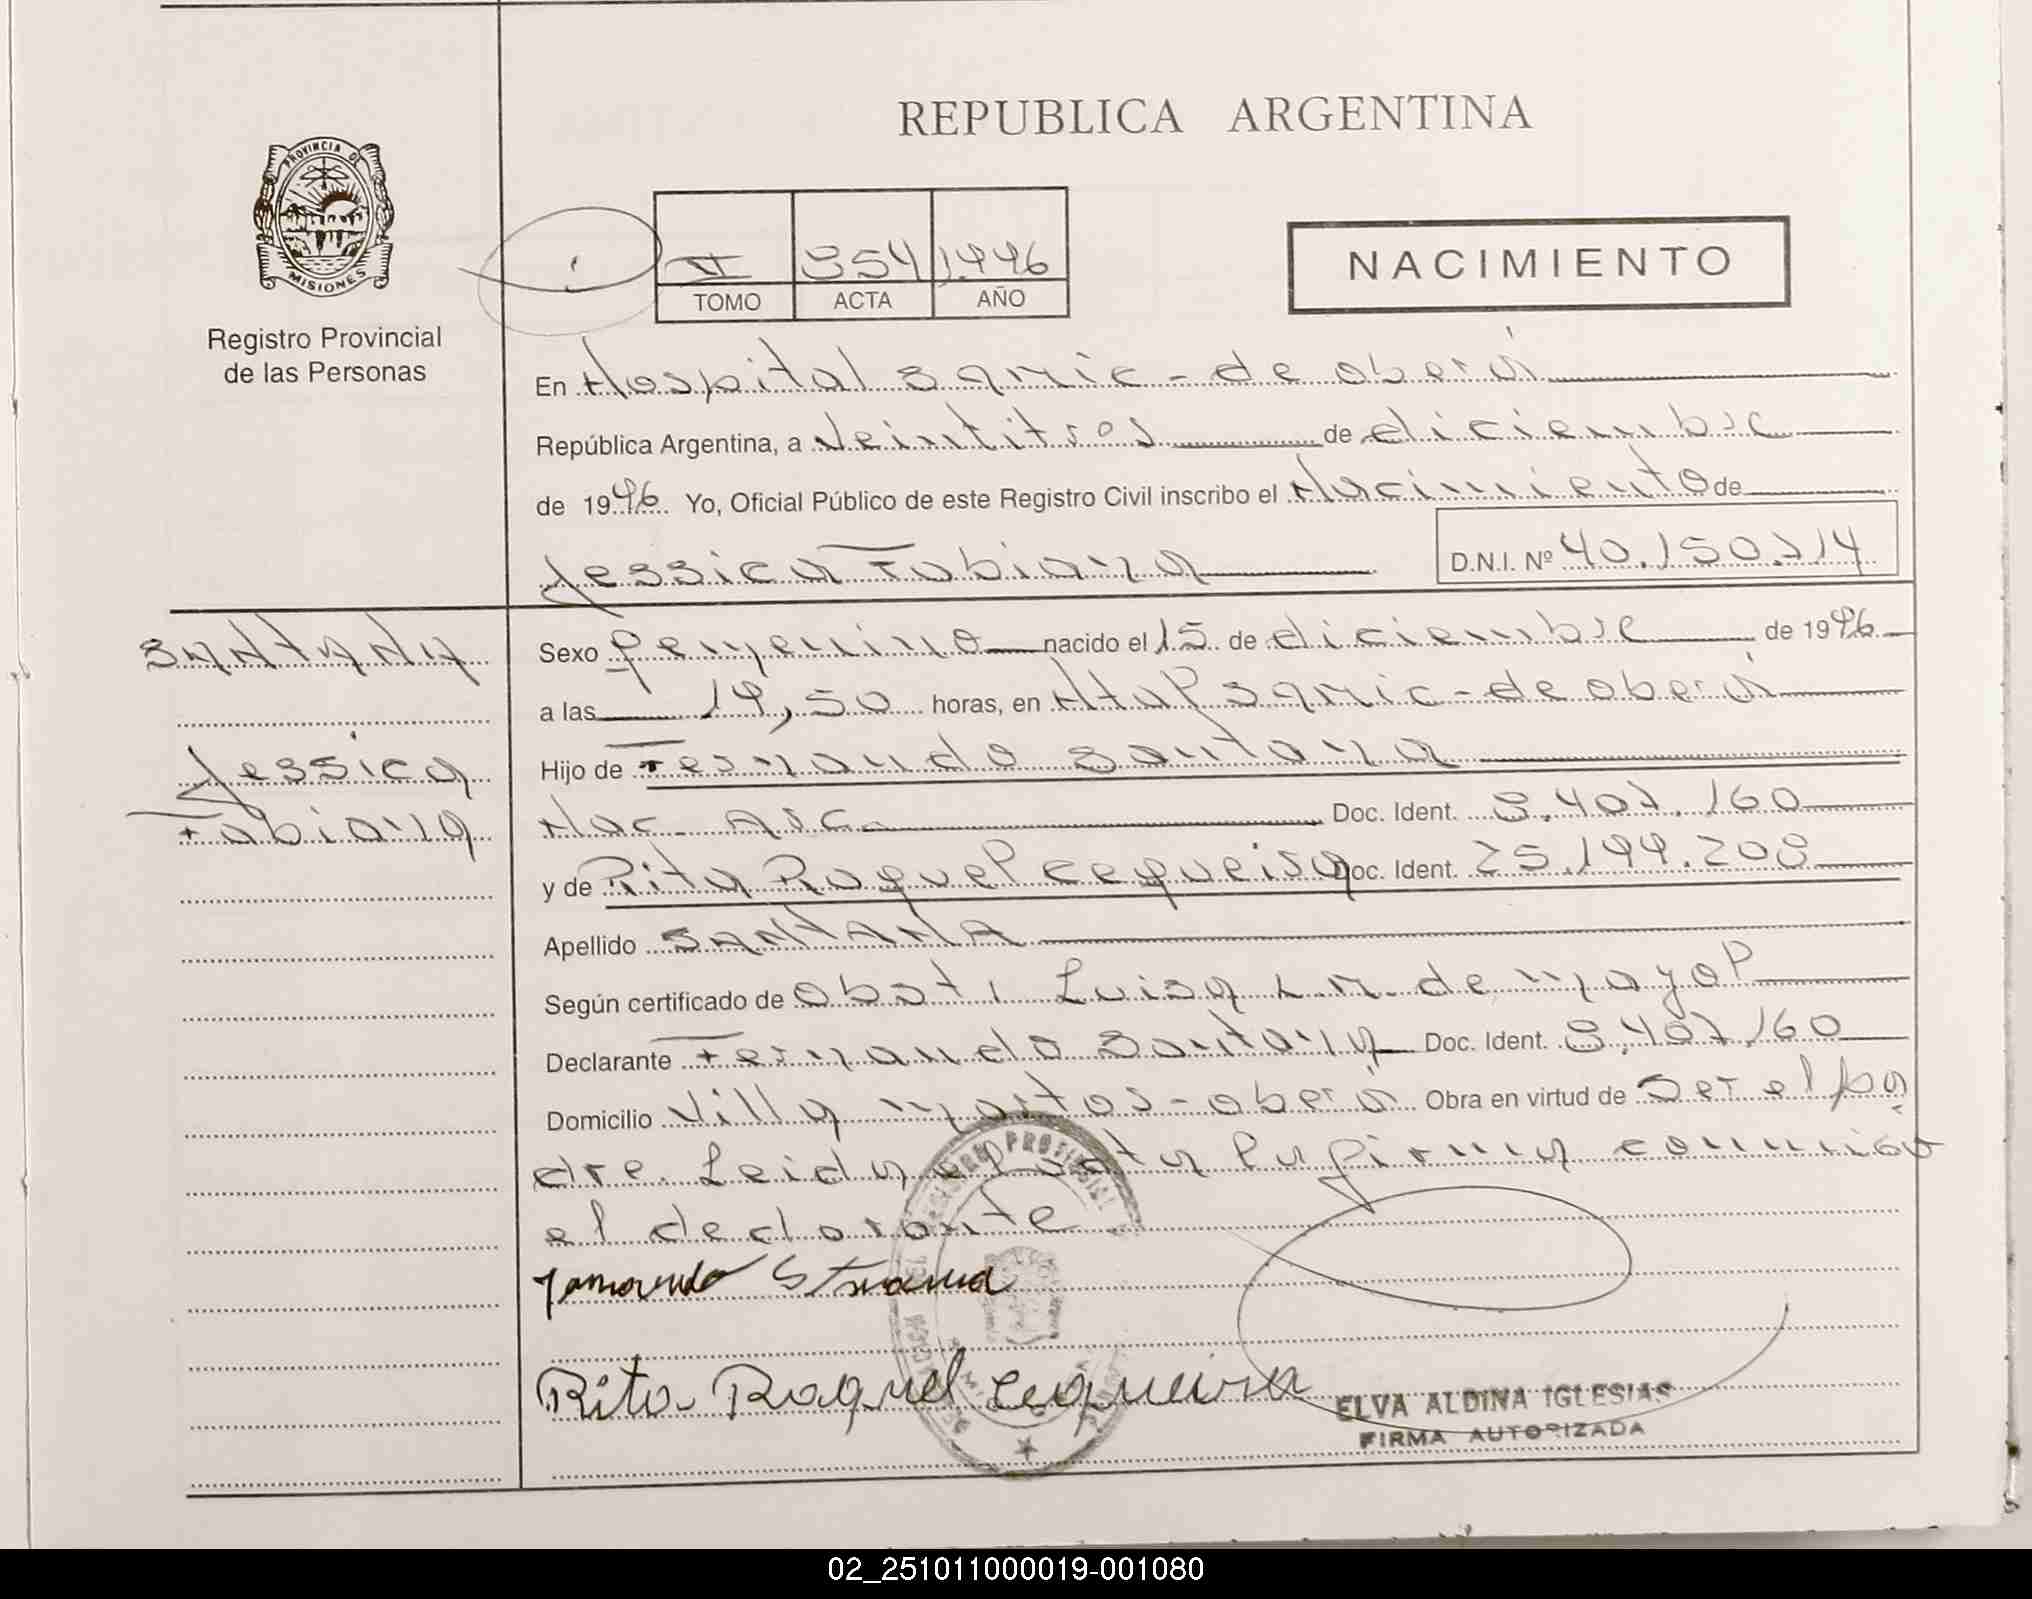 REPUBLICA ARGENTINA
PROVINCIA DE
MISIONES
Registro Provincial
de las Personas
354 1996
TOMO ACTA AÑO
NACIMIENTO
En Hospital Samic - de oberá
República Argentina, a Veintitres de diciembre
de 1996 Yo, Oficial Público de este Registro Civil inscribo el Nacimiento de
Jessica Fabiana D.N.I. Nº 40.150.714
SANTANA
Jessica
Fabiana
Sexo femenino nacido el 15 de diciembre de 1996
a las 19,50 horas, en Htal Samic - de oberá
Hijo de Fernando Santana
Nac. Arg. Doc. Ident. 8.407.160
y de Rita Raquel Cequeira Doc. Ident. 25.199.208
Apellido SANTANA
Según certificado de Obst, Luisa L.M. de Mayol
Declarante Fernando Santana Doc. Ident. 8.407.160
Domicilio Villa Martos - oberá Obra en virtud de Ser el pa
dre. Leida el acta la firma conmigo
el declarante
Rita Raquel Cequeira
ELVA ALDINA IGLESIAS
FIRMA AUTORIZADA
02_251011000019-001080